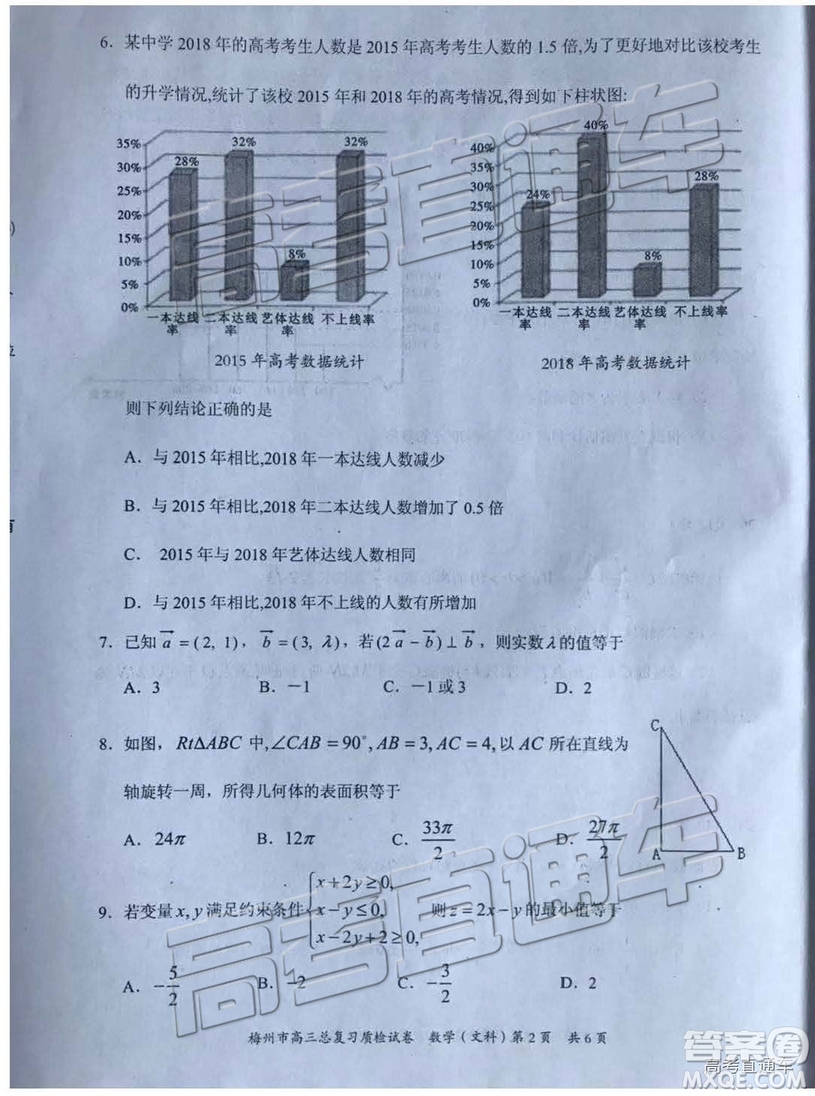 6．某中学 2018 年的高考考生人数是 2015 年高考考生人数的 1.5 倍,为了更好地对比该校考生
的升学情况,统计了该校 2015 年和 2018 年的高考情况,得到如下柱状图:
35%
30%
25%
20%
15%
10%
5%
0%
28%
32%
8%
32%
一本达线率 二本达线率 艺体达线率 不上线率
2015 年高考数据统计
40%
35%
30%
25%
20%
15%
10%
5%
0%
24%
40%
8%
28%
一本达线率 二本达线率 艺体达线率 不上线率
2018 年高考数据统计
则下列结论正确的是
A．与 2015 年相比,2018 年一本达线人数减少
B．与 2015 年相比,2018 年二本达线人数增加了 0.5 倍
C． 2015 年与 2018 年艺体达线人数相同
D．与 2015 年相比,2018 年不上线的人数有所增加
7．已知 $\overrightarrow{a}$ = ( 2, 1)， $\overrightarrow{b}$ = (3, λ)，若 (2$\overrightarrow{a}$ − $\overrightarrow{b}$) ⊥ $\overrightarrow{b}$，则实数 λ 的值等于
A．3 B．−1 C．−1 或 3 D．2
8．如图，RtΔABC 中,∠CAB = 90°, AB = 3, AC = 4, 以 AC 所在直线为
轴旋转一周，所得几何体的表面积等于
A．24π B．12π C．33π/2 D．27π/2
C
A
B
9．若变量 x, y 满足约束条件 { x + 2y ≥ 0, x − y ≤ 0, x − 2y + 2 ≥ 0, 则 z = 2x − y 的最小值等于
A．−5/2 B．−2 C．−3/2 D．2
梅州市高三总复习质检试卷 数学（文科）第 2 页 共 6 页
高考直通车
高考直通车
高考直通车
答案圈
高考直通车
MXQE.COM